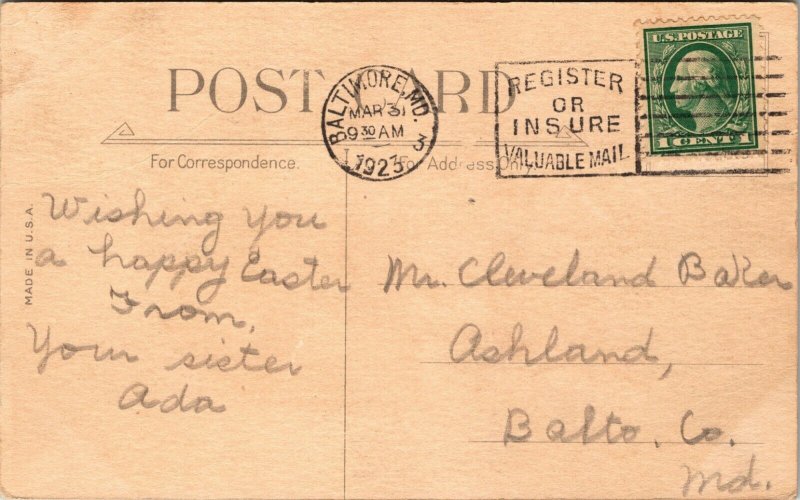 POST CARD
BALTIMORE, MD.
MAR 31
9 30 AM
1923
3
REGISTER
OR
INSURE
VALUABLE MAIL
U.S. POSTAGE
1 CENT 1
For Correspondence.
For Address Only.
MADE IN U.S.A.
Wishing you
a happy Easter
From,
Your sister
Ada
Mr. Cleveland Baker
Ashland,
Balto. Co.
Md.